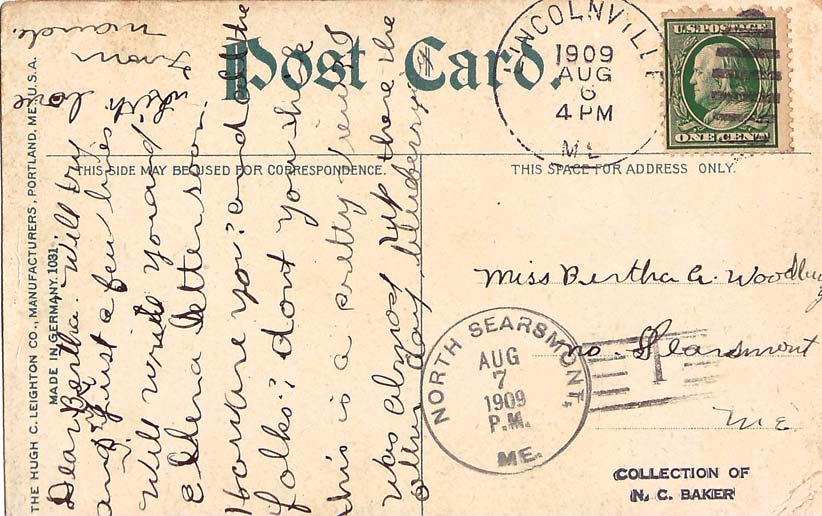 Post Card.
THIS SIDE MAY BE USED FOR CORRESPONDENCE.
THIS SPACE FOR ADDRESS ONLY.
THE HUGH C. LEIGHTON CO., MANUFACTURERS, PORTLAND, ME., U.S.A.
MADE IN GERMANY. 1031
LINCOLNVILLE
1909
AUG
6
4 PM
ME
U.S. POSTAGE
ONE CENT
Dear Bertha. Will try
and just a few lines
Will write you and
Ellena letter soon.
How are you? and all the
folks? dont you think
this is a pretty
was almost up there the
other day blueberry
with love
from
Maude.
Miss Bertha A. Woodbury
no. Searsmont
Me.
NORTH SEARSMONT,
AUG
7
1909
P.M.
ME.
1
COLLECTION OF
N. C. BAKER